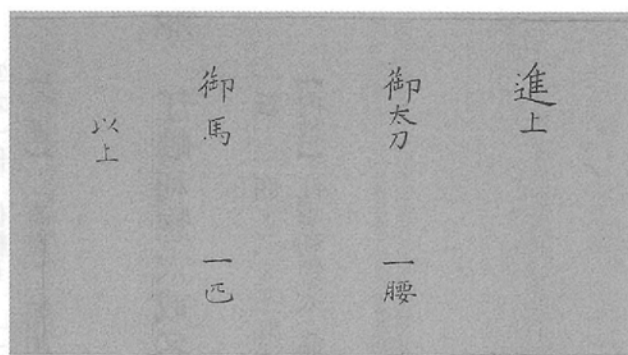 進上
御太刀 一腰
御馬 一匹
以上